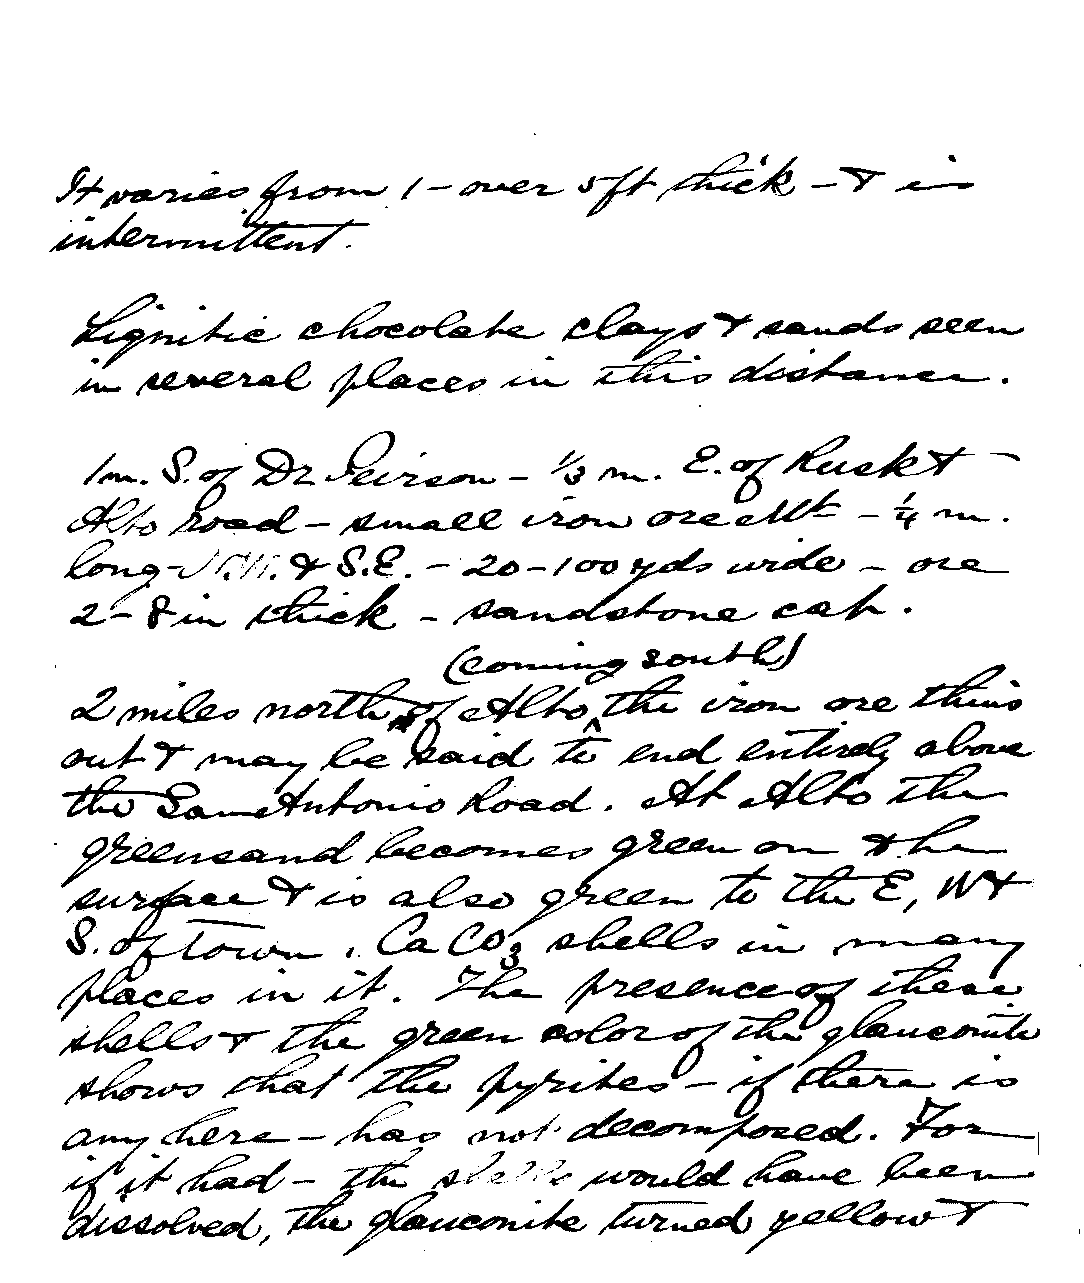 It varies from 1 - over 5ft thick - & is
intermittent.
Lignitic chocolate clays & sands seen
in several places in this distance.
1m. S. of Dr Peirson - 1/3 m. E. of Rusk &
Alto road - small iron ore Mt - 1/4 m.
long - N.W. & S.E. - 20-100 yds wide - ore
2-8 in thick - sandstone cap.
(coming south)
2 miles north of Alto ^ the iron ore thins
out & may be said to end entirely above
the San Antonio Road. At Alto the
greensand becomes green on the
surface & is also green to the E, W &
S. of Town. CaCO3 shells in many
places in it. The presence of these
shells & the green color of the glauconite
shows that the pyrites - if there is
any here - has not decomposed. For
if it had - the shells would have been
dissolved, the glauconite turned yellow &